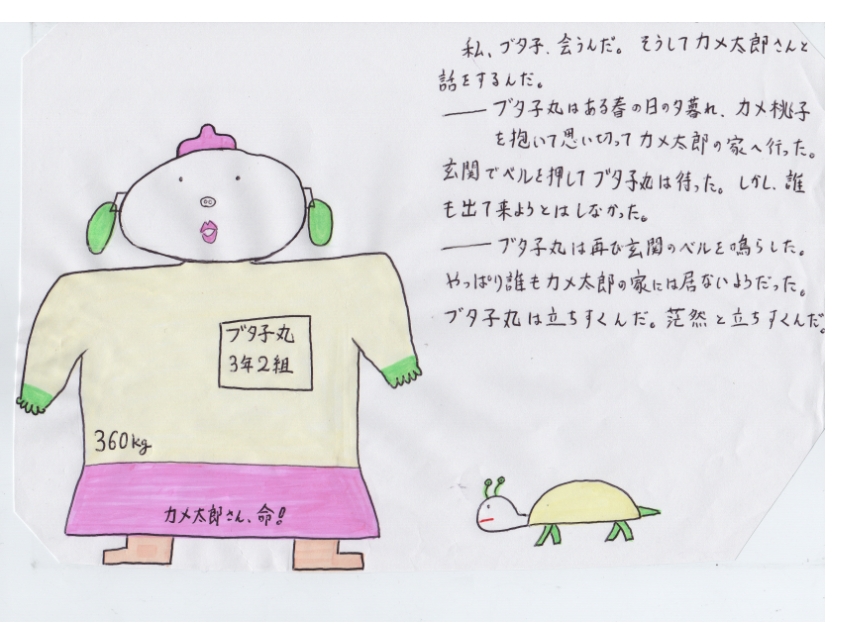 私、ブタ子、会うんだ。そうしてカメ太郎さんと
話をするんだ。
―― ブタ子丸はある春の日の夕暮れ、カメ桃子
を抱いて思い切ってカメ太郎の家へ行った。
玄関でベルを押してブタ子丸は待った。しかし、誰
も出て来ようとはしなかった。
―― ブタ子丸は再び玄関のベルを鳴らした。
やっぱり誰もカメ太郎の家には居ないようだった。
ブタ子丸は立ちすくんだ。茫然と立ちすくんだ。
ブタ子丸
3年2組
360kg
カメ太郎さん、命!